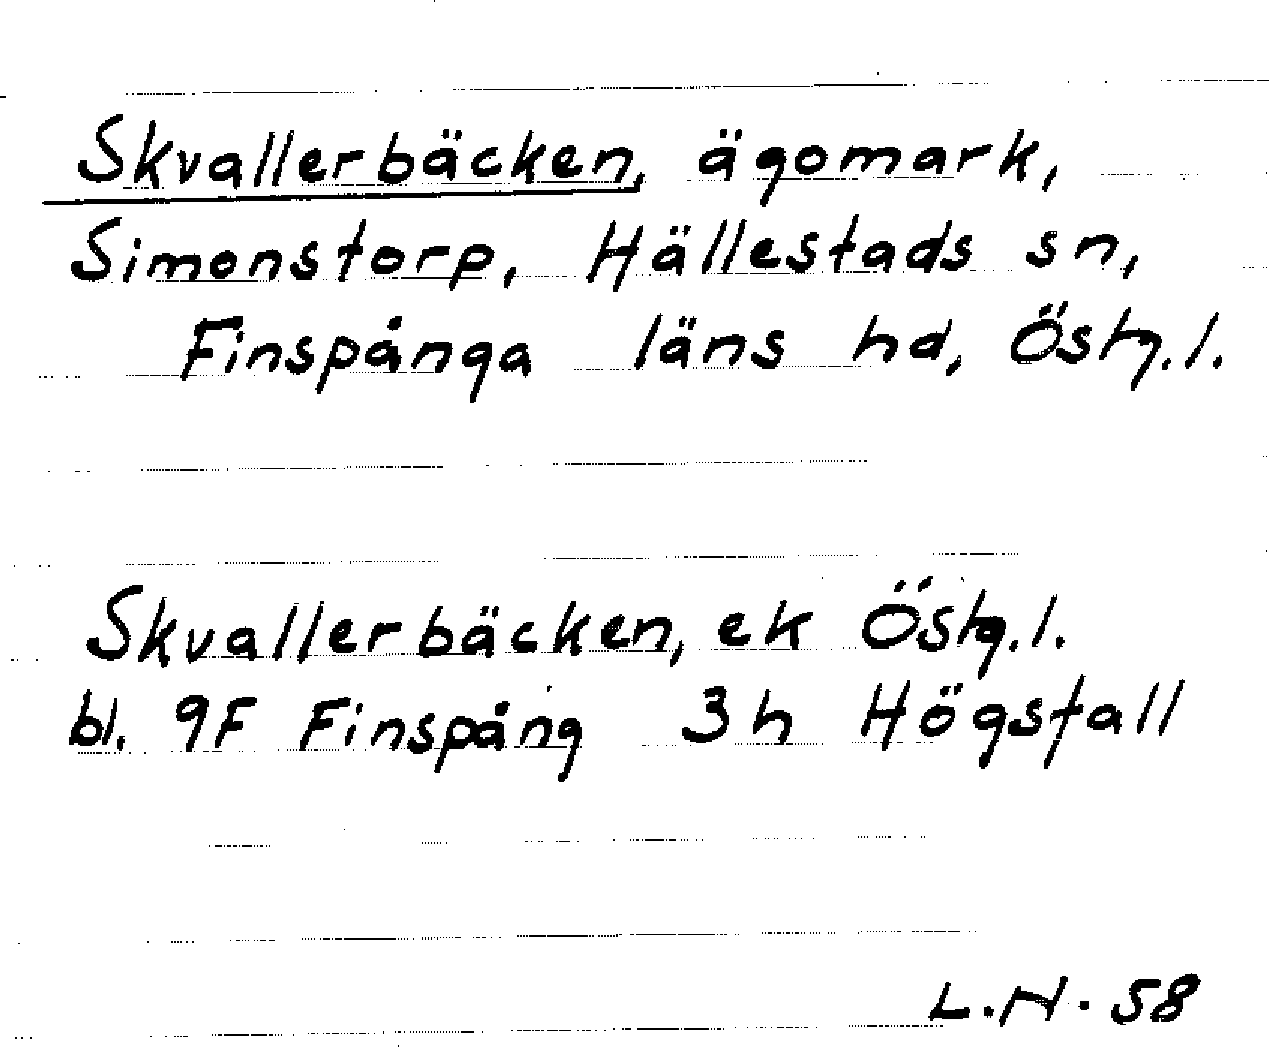 Skvallerbäcken, ägomark,
Simonstorp, Hällestads sn,
Finspånga läns hd, Östg.l.
Skvallerbäcken, ek Östg.l.
bl. 9F Finspång 3h Högstall
L.H. 58